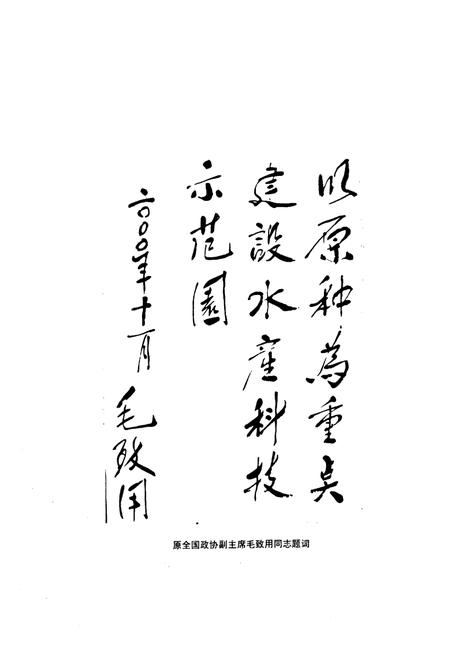 以原种为重点
建設水産科技
示范園
二〇〇〇年十一月
毛致用
原全国政协副主席毛致用同志题词